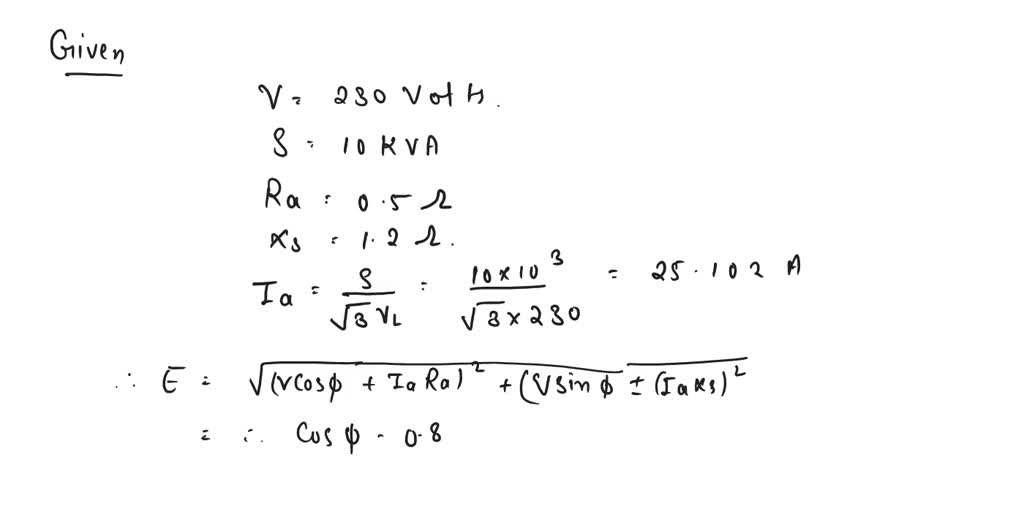 Given
V = 230 Volts.
S = 10 KVA
Ra = 0.5 Ω
Xs = 1.2 Ω.
Ia = S / √3 VL = 10 × 10³ / √3 × 230 = 25.102 A
∴ E = √(VCosϕ + Ia Ra)² + (VSinϕ ± (Ia Xs)²
= ∴ Cos ϕ - 0.8